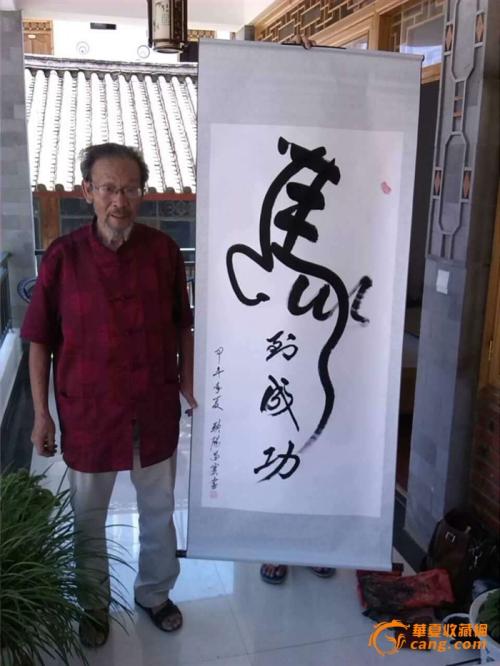 馬
到
成
功
甲午年夏
華夏收藏網
cang.com